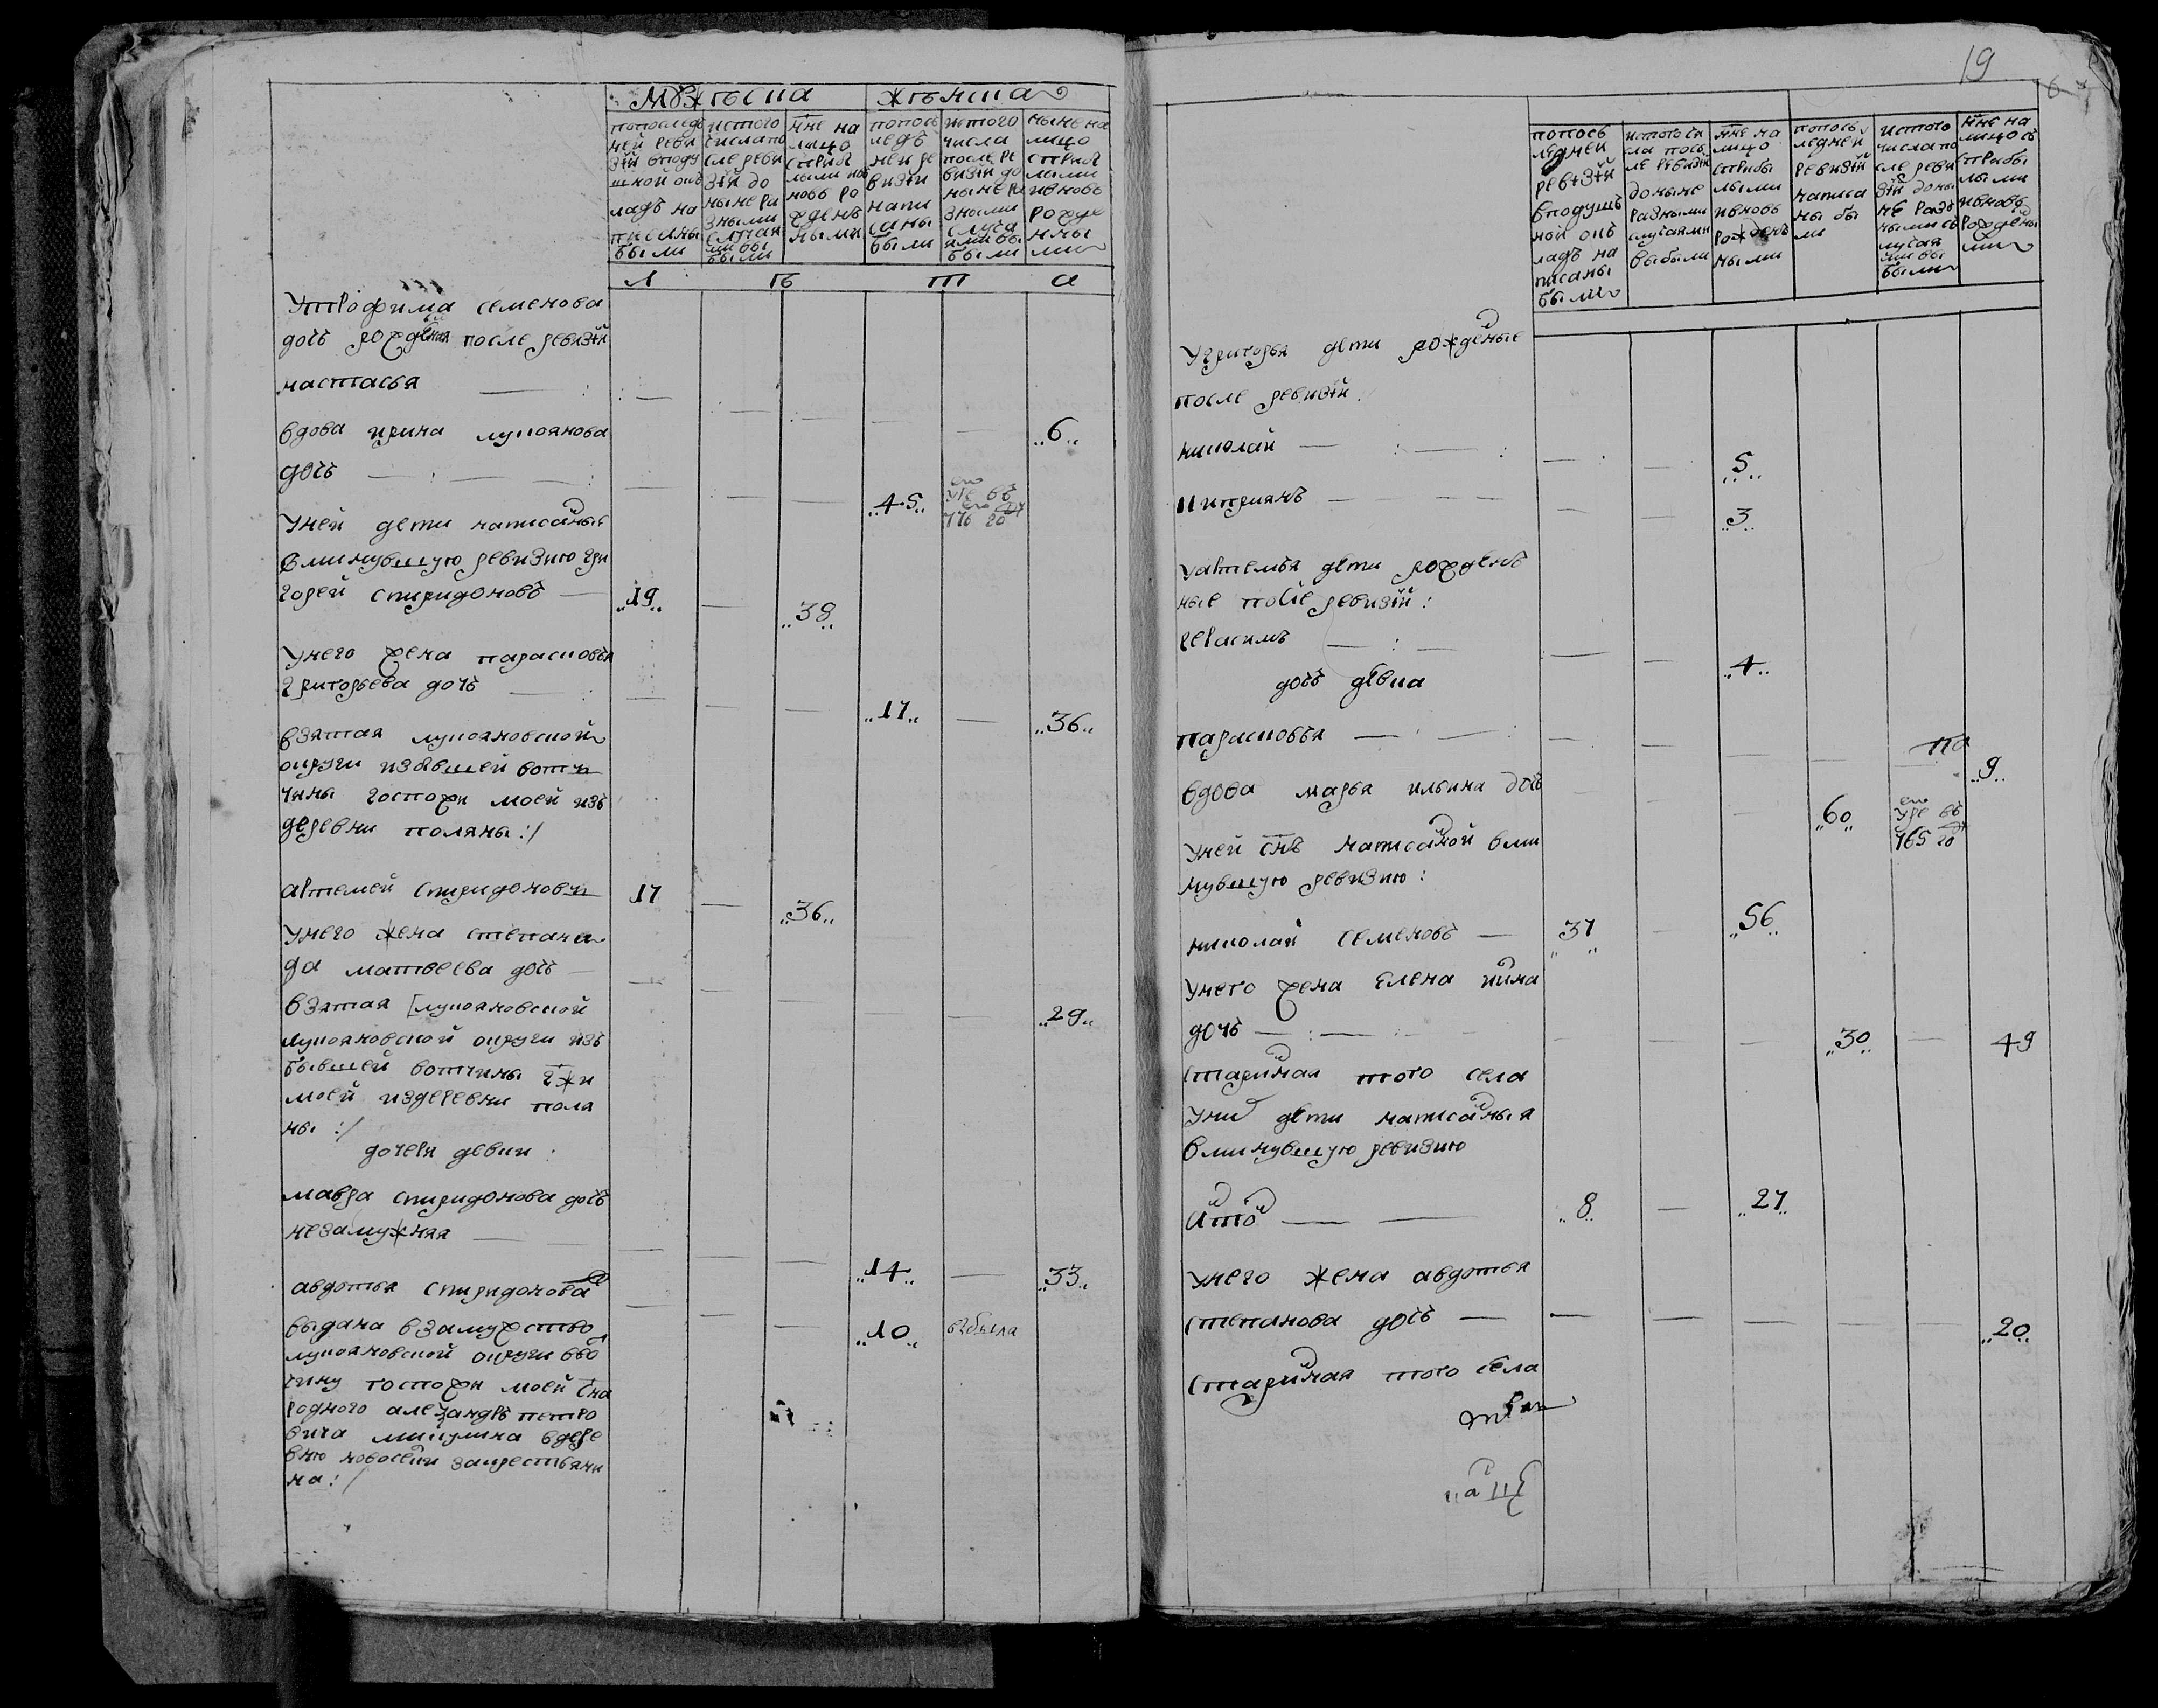 Мужеска
женска
попоследъ
ней реви
зіи вподу
шной окъ
ладъ на
писаны
были
истого
числапо
сле реви
зіи до
ныне ра
зными
случаи
выбы
были
нне на
лицо
спри
лыми по
новъ ро
жденъ
ными
попосъ
ледъ
ней ре
визіи
напи
саны
были
истого
числа
после ре
визіи до
ныне ра
зными
случа
ями вы
были
ныне на
лицо
спри
лыми
ивновь
рожде
нны
ми
Л
Ѣ
Т
А
Утрофима семенова
дочь после ревизіи
настасья
6
вдова ирина лукоянова
дочь
45
уме въ
776 го
Уней дети написаные
вминувшую ревизию гри
горей спиридоновъ
19
38
Унего жена парасковья
григорьева дочь
17
36
взятая лукояновской
округи избывшей вотчи
чины госпожи моей изъ
деревни поляны :/
артемей спиридоновъ
17
36
Унего жена степани
да матвеева дочь
29
взятая лукояновской
лукояновской округи изъ
бывшей вотчины гжи
моей издеревни поля
ны :/
дочери девки :
мавра спиридонова дочь
незамужняя
14
33
авдотья спиридонова
10
выбыла
выдана взамужство
лукояновской округи вво
чину госпожи моей сна
родного алеѯандръ петро
вича микулина вдере
вню новоселки закрестьяни
на :/
19
попось
ледней
ревизіи
вподушъ
ной окъ
ладъ на
писаны
были
истого чи
сла посъ
ле ревизіи
доныне
разными
случаями
выбыли
нне на
лицо
сприбы
лыми
ивновь
рожденъ
ными
попось
ледней
ревизіи
написа
ны бы
ли
истого
числа по
сле реви
зіи доны
не разъ
ными съ
лучая
ми вы
были
нне на
лицо съ
прибы
лыми
ивновь
рождены
ми
Угригорья дети рожденые
после ревизіи
николай
5
киприянъ
3
Уартемья дети рожденъ
ные после ревизіи :
герасимъ
4
дочь девка
парасковья
9
вдова марья ильина дочь
60
уме въ
765 го
Уней снъ написаной вми
нувшую ревизию :
николай семеновъ
37
56
Унего жена елена
дочь
30
49
старинная того села
Уних дети написаныя
вминувшую ревизию
8
27
Унего жена авдотья
степанова дочь
20
старинная того села